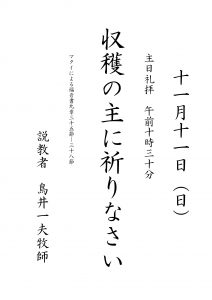 十一月十一日（日）
主日礼拝　午前十時三十分
収穫の主に祈りなさい
マタイによる福音書九章三十五節－三十八節
説教者　鳥井一夫牧師